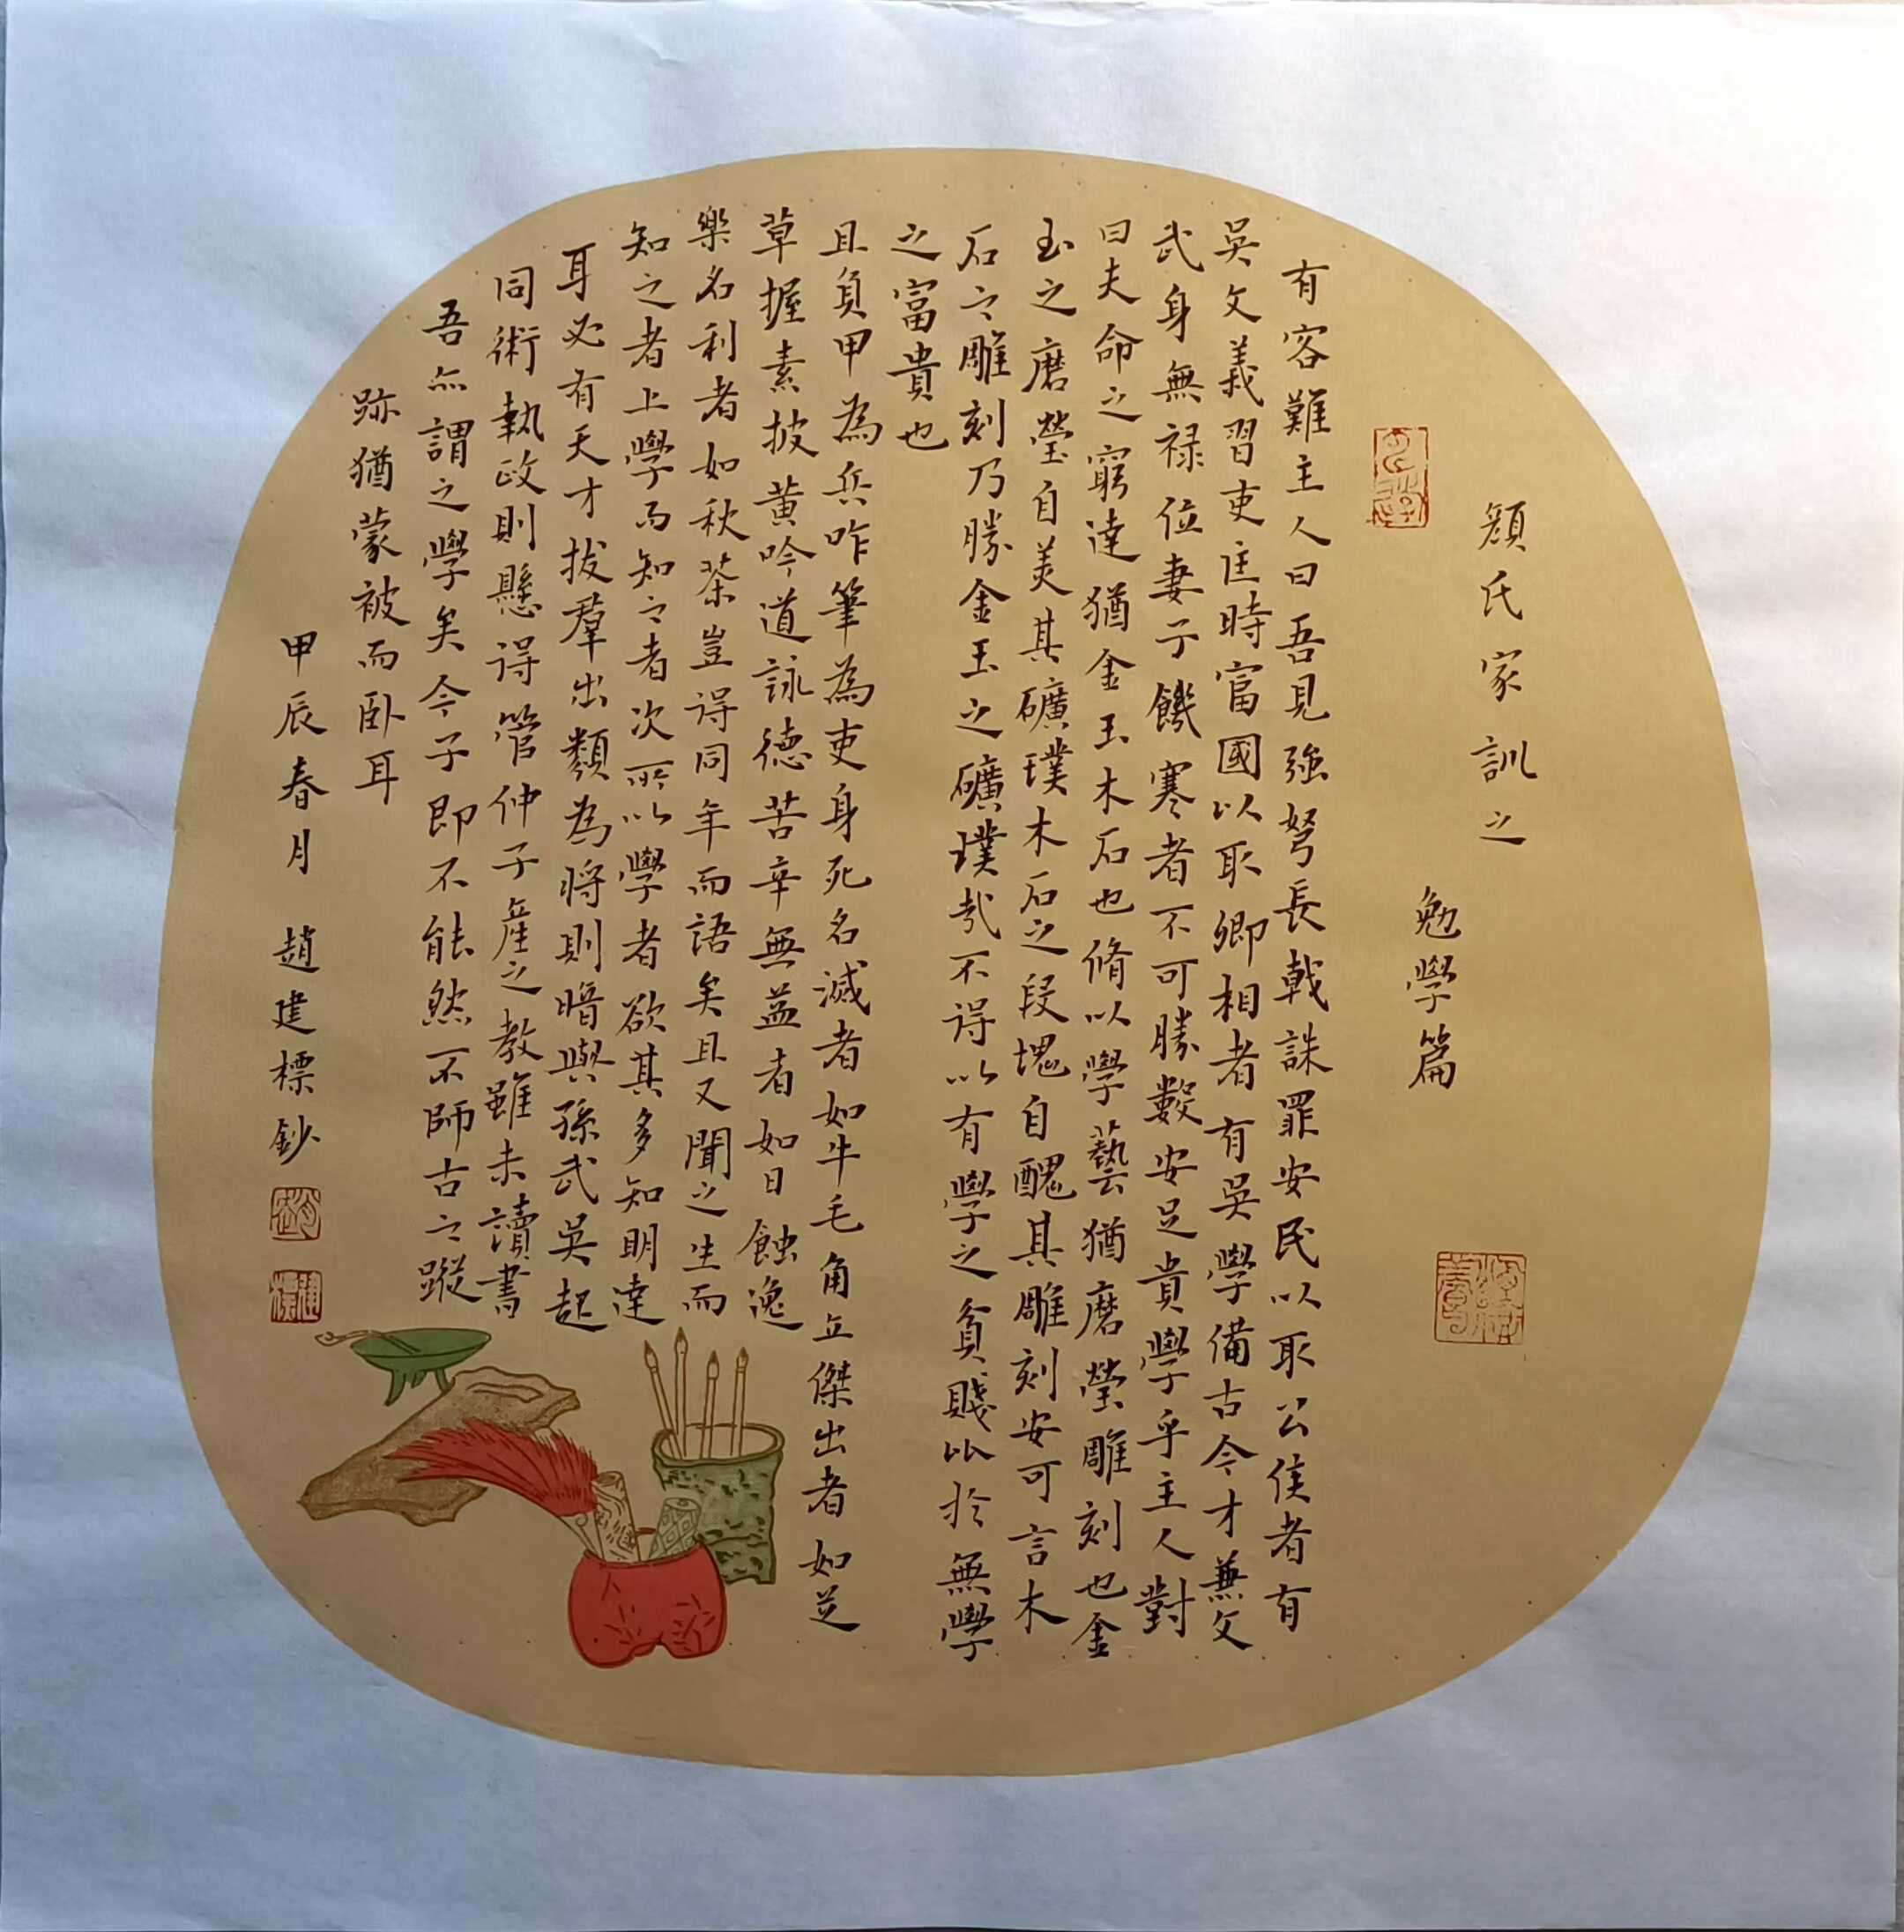 顏氏家訓之
勉學篇
有客難主人曰吾見強弩長戟誅罪安民以取公侯者有
吳文義習吏匡時富國以取卿相者有吳學備古今才兼文
武身無祿位妻子饑寒者不可勝數安足貴學乎主人對
曰夫命之窮達猶金玉木石也脩以學藝猶磨瑩雕刻也金
玉之磨瑩自美其礦璞木石之段塊自醜其雕刻安可言木
石之雕刻乃勝金玉之礦璞哉不得以有學之貧賤比於無學
之富貴也
且負甲為兵咋筆為吏身死名滅者如牛毛角立傑出者如芝
草握素披黄吟道詠德苦辛無益者如日蝕逸
樂名利者如秋荼豈得同年而語矣且又聞之生而
知之者上學而知之者次所以學者欲其多知明達
耳必有天才拔羣出類為將則暗與孫武吳起
同術執政則懸得管仲子産之教雖未讀書
吾亦謂之學矣今子即不能然不師古之蹤
跡猶蒙被而臥耳
甲辰春月 趙建標鈔
趙
建標